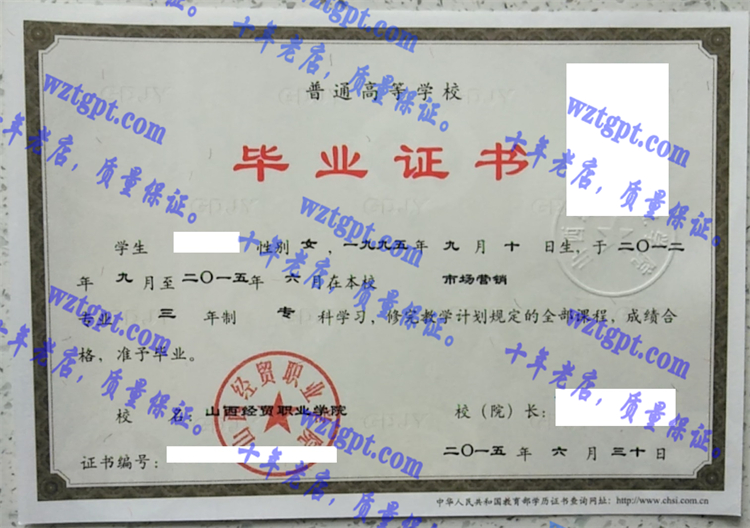 普通高等学校
毕业证书
学生 性别 女 ，一九九五年 九 月 十 日生，于 二〇一二
年 九 月至 二〇一五年 六 月在本校 市场营销
专业 三 年制 专 科学习，修完教学计划规定的全部课程，成绩合
格，准予毕业。
校 名 山西经贸职业学院 校（院）长：
二〇一五 年 六 月 三十 日
证书编号：
中华人民共和国教育部学历证书查询网址：http://www.chsi.com.cn
山西经贸职业学院
wztgpt.com
十年老店，质量保证。
wztgpt.com
十年老店，质量保证。
wztgpt.com
十年老店，质量保证。
wztgpt.com
十年老店，质量保证。
wztgpt.com
十年老店，质量保证。
wztgpt.com
十年老店，质量保证。
wztgpt.com
十年老店，质量保证。